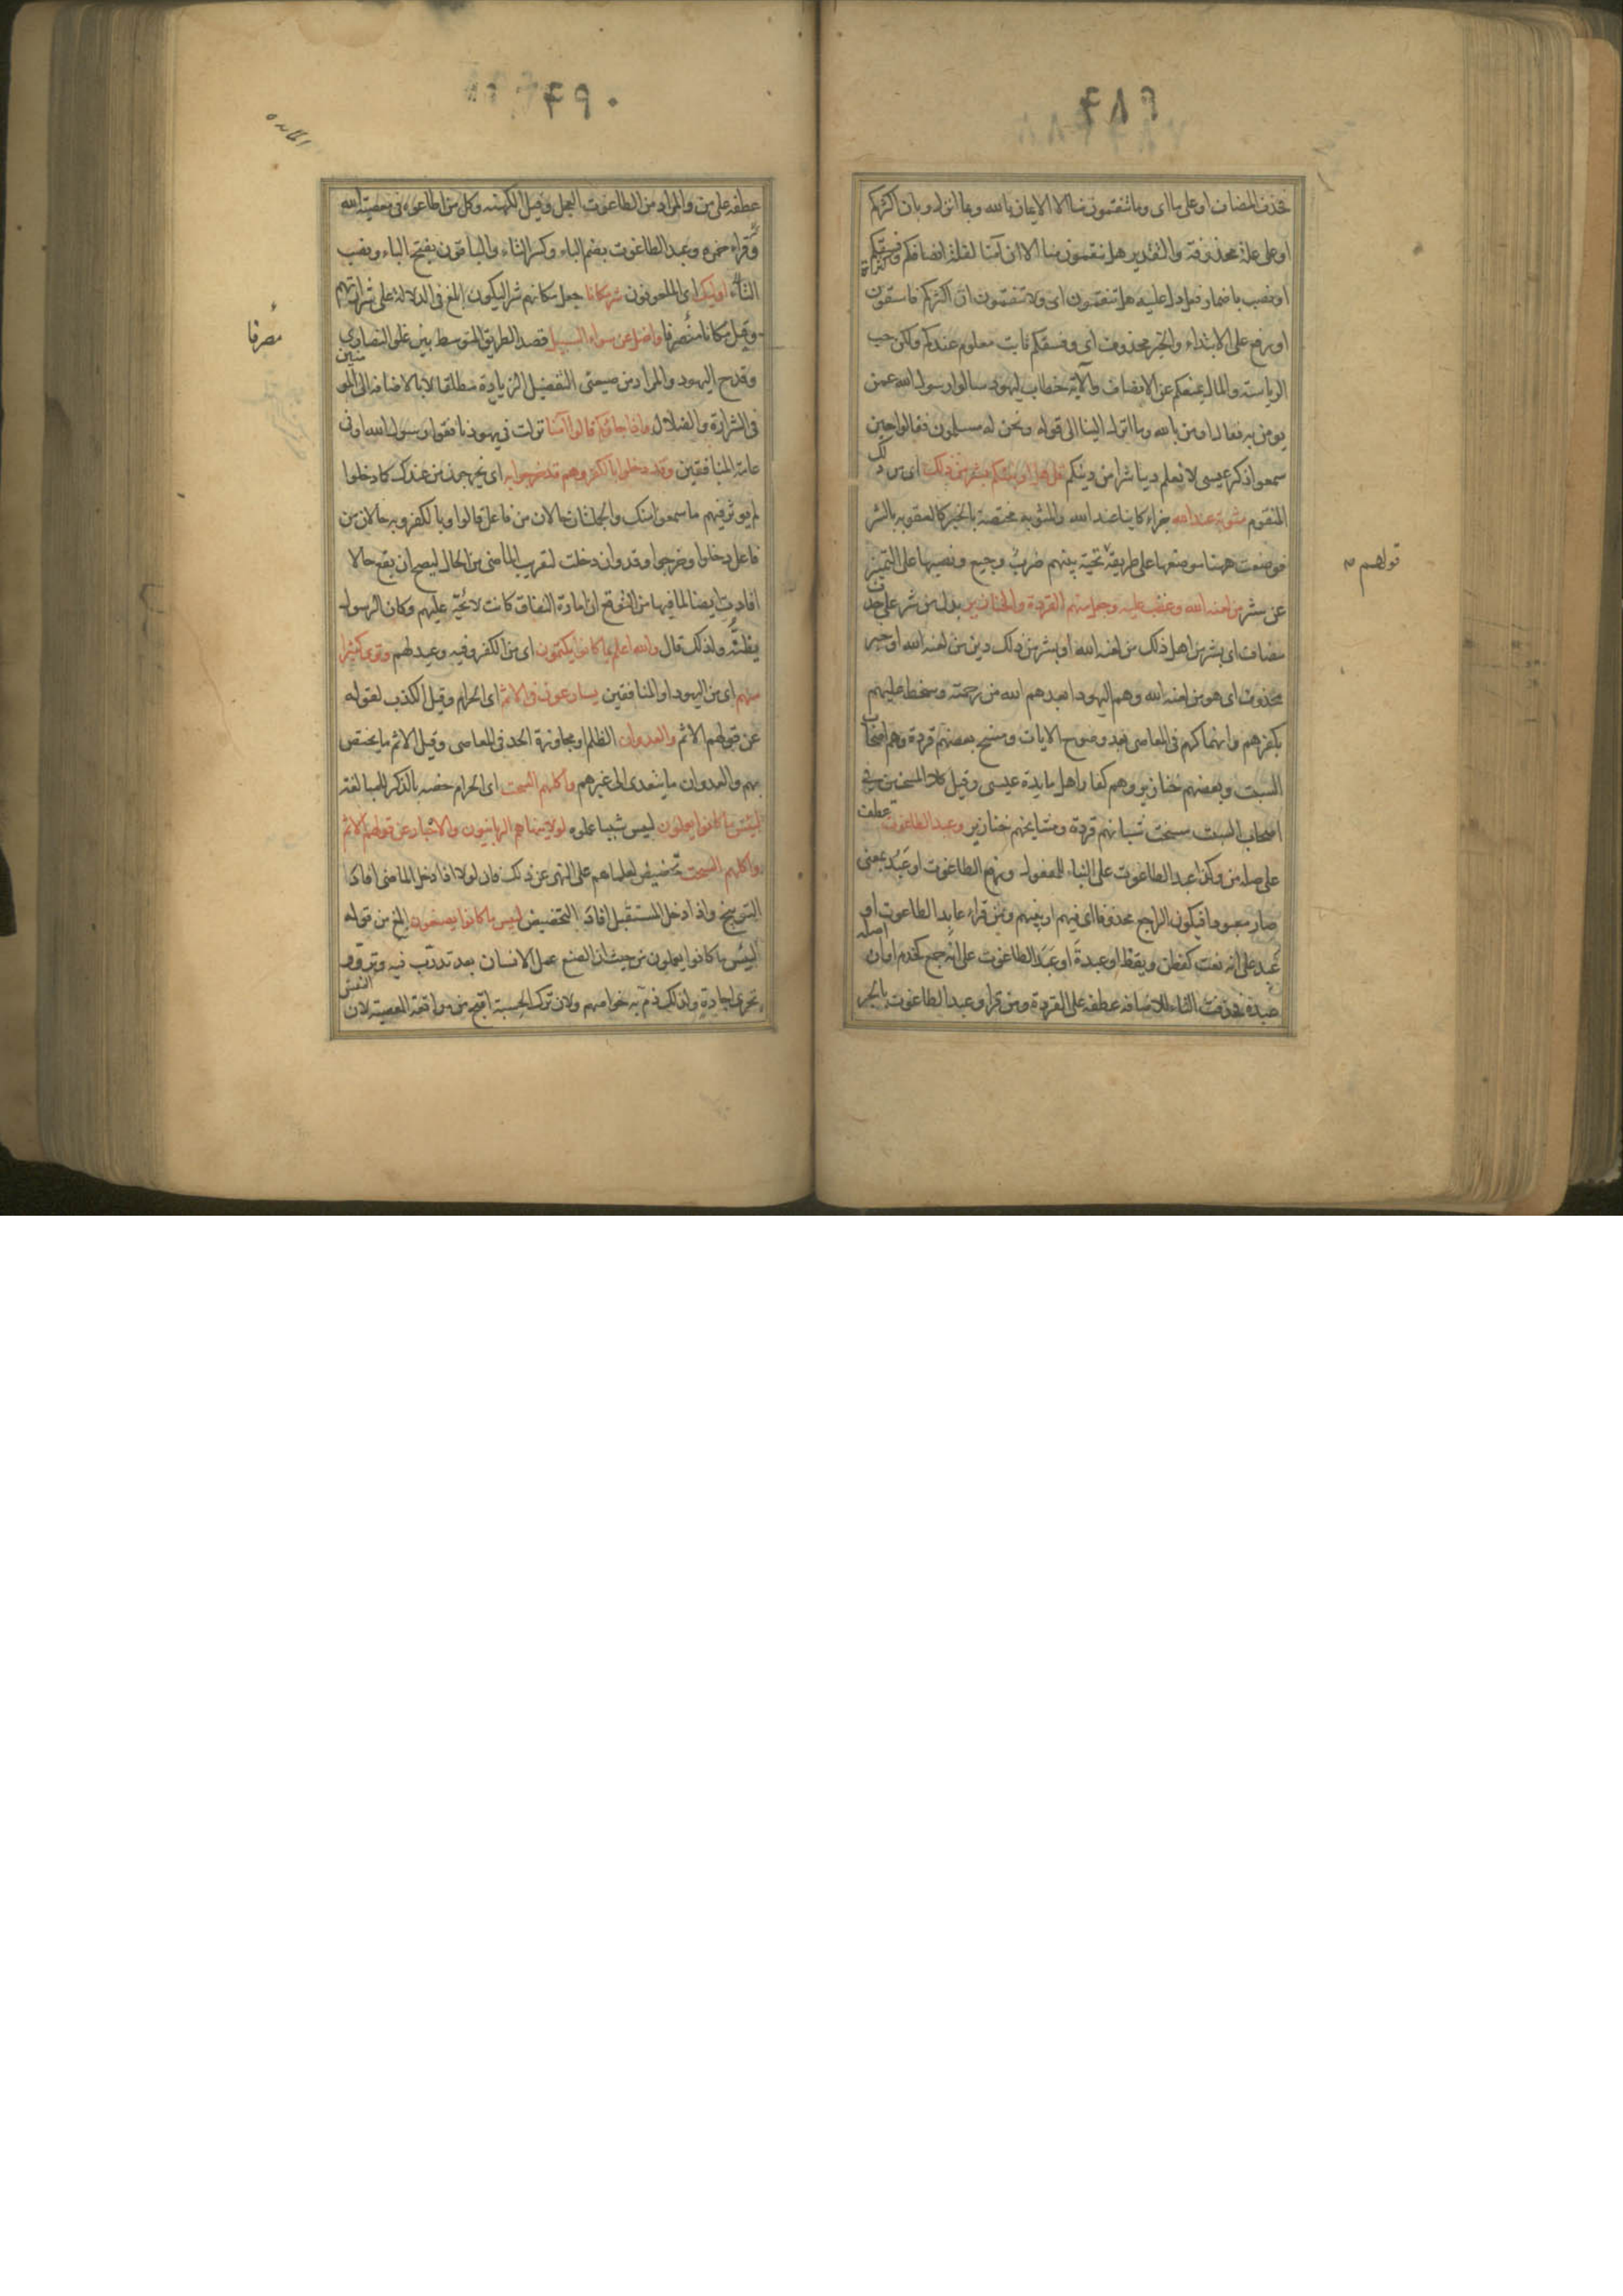 ۴۸۹
فحذف المضاف او على ما اى وما تنقمون منا الا الايمان بالله وبما انزل وبان اكثركم
او على علة محذوفة والتقدير هل تنقمون منا الا ان آمنا لقلة انصافكم وفسقكم
او نصب باضمار فعل دل عليه هل تنقمون اى ولا تنقمون ان اكثركم فاسقون
او رفع على الابتداء والخبر محذوف اى وفسقكم ثابت معلوم عندكم ولكن حب
الرياسة والمال يمنعكم عن الانصاف والآية خطاب ليهود سالوا رسول الله عمن
يومن به فقال اومن بالله وما انزل الينا الى قوله ونحن له مسلمون فقالوا حين
سمعوا ذكر عيسى لا نعلم دينا شرا من دينكم قل هل انبئكم بشر من ذلك اى من ذلك
المنقوم مثوبة عند الله جزاء كاينا عند الله والمثوبة مختصة بالخير كالعقوبة بالشر
فوضعت ههنا موضعها على طريقة تحية بينهم ضرب وجيع ونصبها على التميز
قولهم
عن بشر من لعنه الله وغضب عليه وجعل منهم القردة والخنازير بدل من شر على حذف
مضاف اى بشر من اهل ذلك من لعنه الله او بشر من ذلك دين من لعنه الله او خبر
محذوف اى هو من لعنه الله وهم اليهود ابعدهم الله من رحمته وسخط عليهم
بكفرهم وانهماكهم فى المعاصى بعد وضوح الايات ومسخ بعضهم قردة وهم اصحاب
السبت وبعضهم خنازير وهم كفار اهل مايدة عيسى وقيل كلا المسخين فى
اصحاب السبت مسخت شبانهم قردة ومشايخهم خنازير وعبد الطاغوت عطف
على صلة من وكذا عبد الطاغوت على البناء للمفعول ورفع الطاغوت او عبد بمعنى
صار معبودا فيكون الراجع محذوفا اى فيهم او بينهم ومن قراء عابد الطاغوت او
عبد على انه نعت كفطن ويقظ او عبدة او عبد الطاغوت على انه جمع كخدم او ان اصله
عبدة فحذفت التاء للاضافة عطفه على القردة ومن قرا وعبد الطاغوت بالجر
۴۹۰
المائده
عطفه على من والمراد من الطاغوت العجل وقيل الكهنة وكل من اطاعوه فى معصية الله
وقراء حمزه وعبد الطاغوت بضم الباء وكسر التاء والباقون بفتح الباء ونصب
التاء اولئك اى الملعونون شر مكانا جعل مكانهم شرا ليكون ابلغ فى الدلالة على شرارتهم
وقيل مكانا منصرفا واضل عن سواء السبيل قصد الطريق المتوسط بين غلو النصارى
وقدح اليهود والمراد من صيغتى التفضيل الزيادة مطلقا لا بالاضافة الى المومنين
فى الشرارة والضلال واذا جاؤكم قالوا آمنا نزلت فى يهود نافقوا رسول الله او فى
عامة المنافقين وقد دخلوا بالكفر وهم قد خرجوا به اى يخرجون من عندك كما دخلوا
لم يوثر فيهم ما سمعوا منك والجملتان حالان من فاعل قالوا وبالكفر وبه حالان من
فاعل دخلوا وخرجوا وقد وان دخلت لتقريب الماضى من الحال ليصح ان يقع حالا
افادت ايضا لما فيها من التوقع ان امارة النفاق كانت لائحة عليهم وكان الرسول
يظنه ولذلك قال والله اعلم بما كانوا يكتمون اى من الكفر وفيه وعيد لهم وترى كثيرا
منهم اى من اليهود او المنافقين يسارعون فى الاثم اى الحرام وقيل الكذب لقوله
عن قولهم الاثم والعدوان الظلم او مجاوزة الحد فى المعاصى وقيل الاثم ما يختص
بهم والعدوان ما يتعدى الى غيرهم واكلهم السحت اى الحرام خصه بالذكر للمبالغة
لبئس ما كانوا يعملون لبيس شيئا عملوه لولا ينهاهم الربانيون والاحبار عن قولهم الاثم
واكلهم السحت تحضيض لعلماهم على النهى عن ذلك فان لولا اذا دخل الماضى افاد
التوبيخ واذا دخل المستقبل افاد التحضيض لبيس ما كانوا يصنعون ابلغ من قوله
لبئس ما كانوا يعملون من حيث ان الصنع عمل الانسان بعد تدرب فيه وتروى
وتحرى اجادة ولذلك ذم به خواصهم ولان ترك الحسبة اقبح من مواقعة المعصية لان النفس